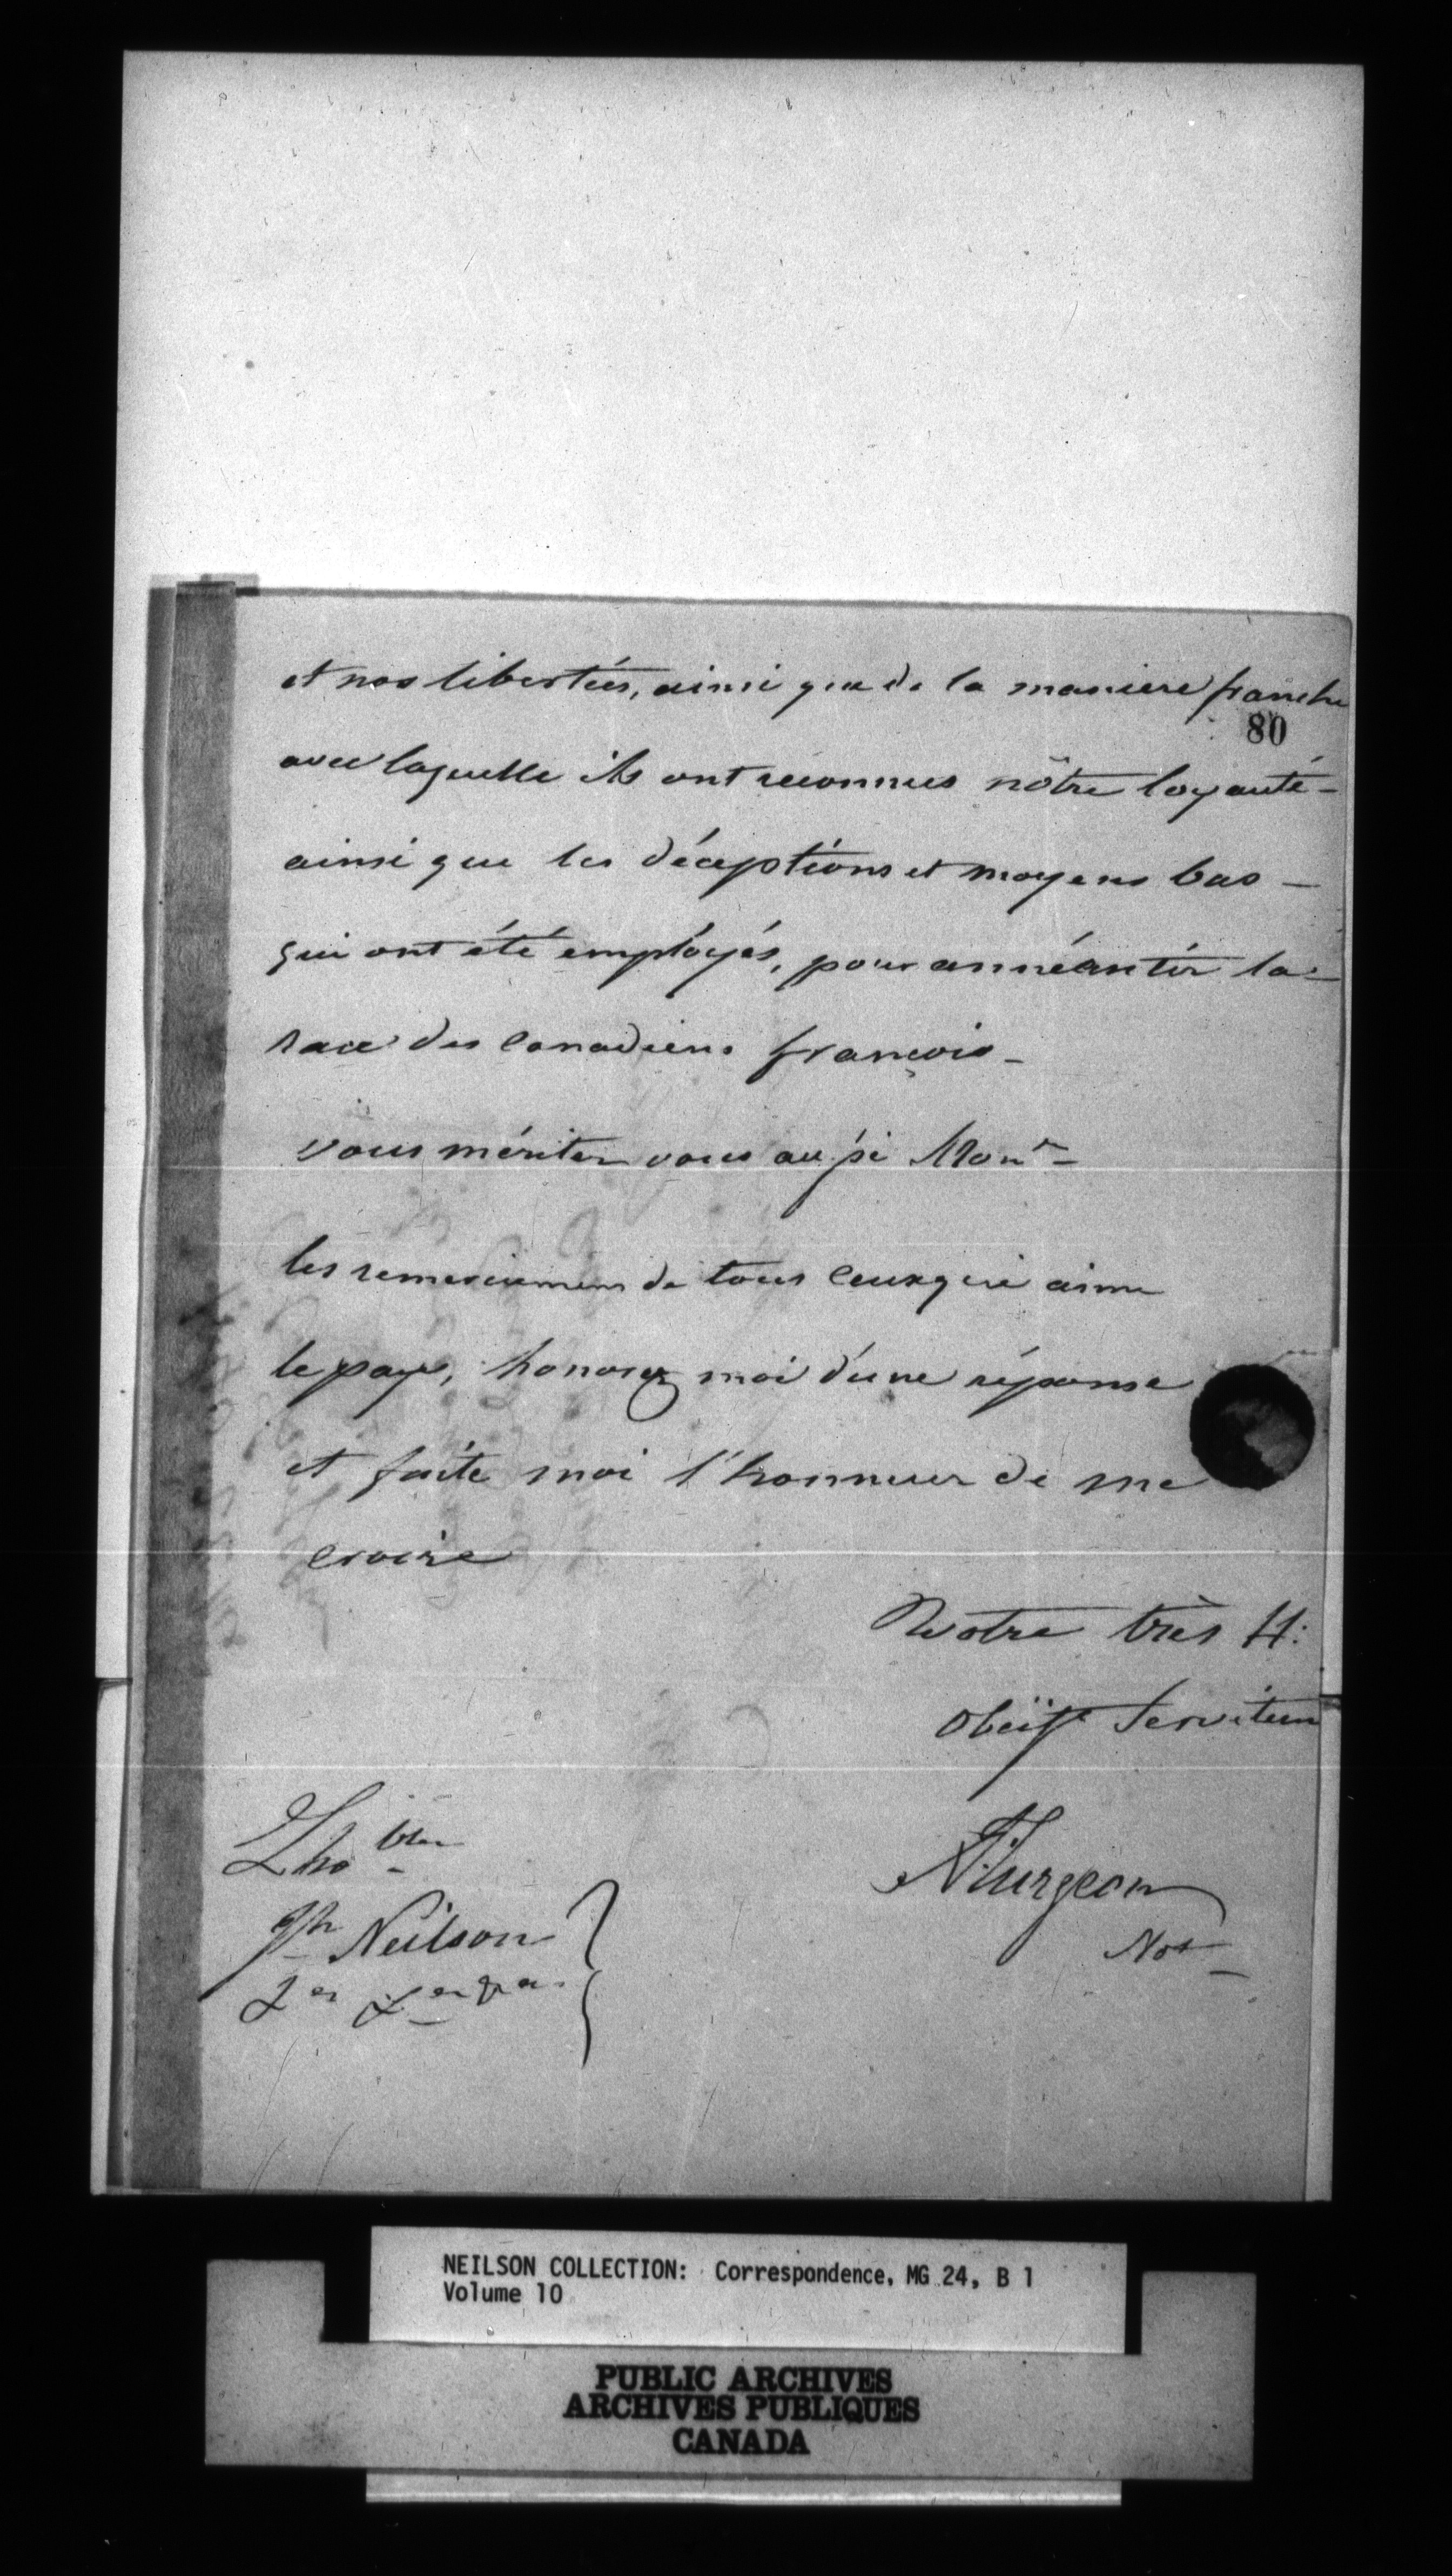 et nos libertées, ainsi que de la maniere franche
80
avec laquelle ils ont reconnus nôtre loyauté -
ainsi que les déceptions et moyens bas -
qui ont été employés, pour annéantir la -
race des Canadiens françois -
vous mériter vous aussi Monr -
les remerciemens de tous ceux qui aime
le pays, honorez moi d'une réponse
et faite moi l'honneur de me
croire
Votre très H:
Obéisst Serviteur
L'hoble
Jn Neilson
Turgeon
Not
NEILSON COLLECTION: Correspondence, MG 24, B 1
Volume 10
PUBLIC ARCHIVES
ARCHIVES PUBLIQUES
CANADA